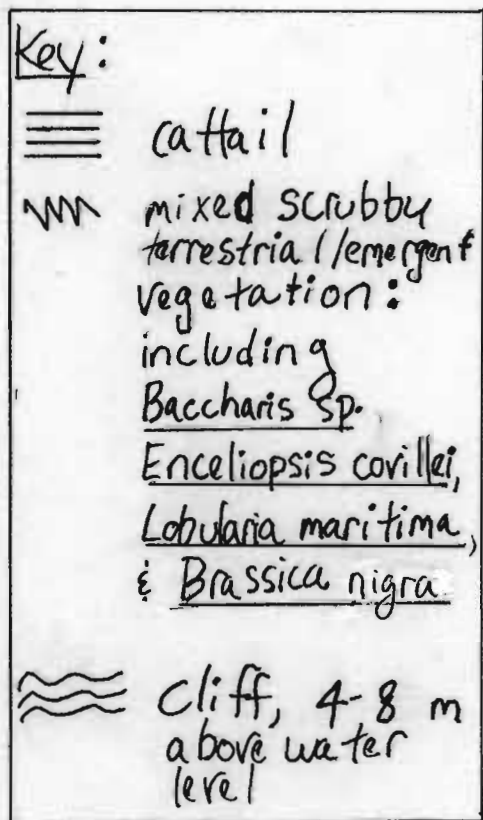 Key:
cattail
mixed scrubby
terrestrial/emergent
vegetation:
including
Baccharis sp.
Enceliopsis covillei,
Lobularia maritima,
& Brassica nigra
cliff, 4-8 m
above water
level